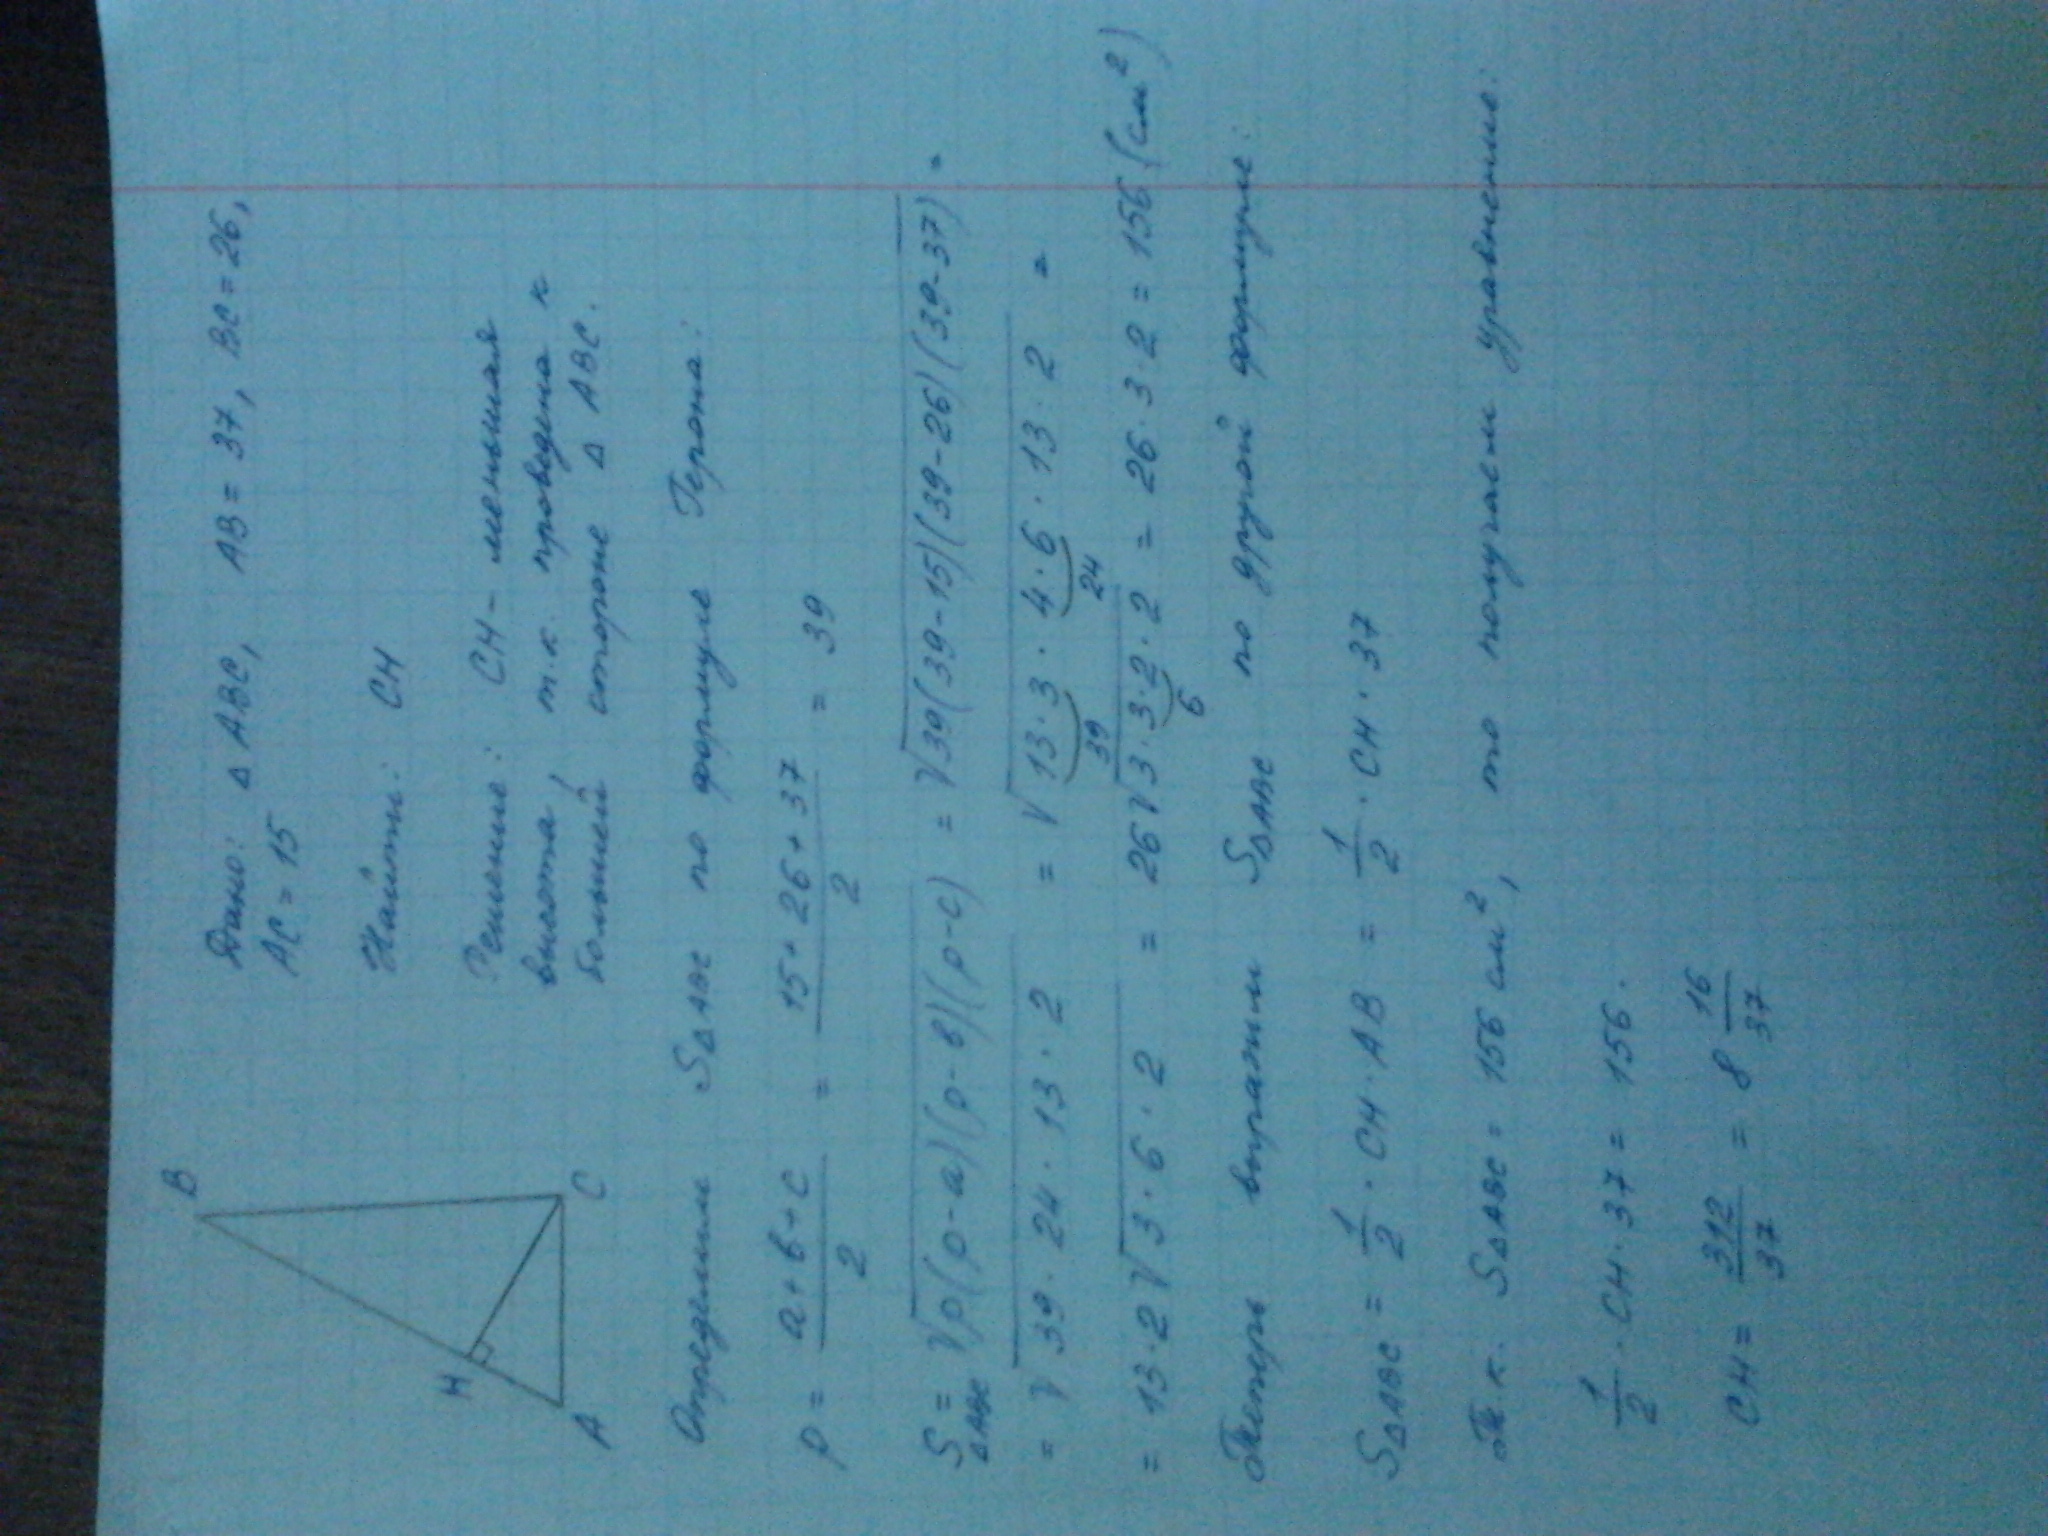 B
H
A
C
Дано: Δ ABC, AB = 37, BC = 26,
AC = 15
Найти: CH
Решение: CH - меньшая
высота, т.к. проведена к
большей стороне Δ ABC.
Определим SΔABC по формуле Герона:
p = (a+b+c)/2 = (15+26+37)/2 = 39
SΔABC = √(p(p-a)(p-b)(p-c)) = √(39(39-15)(39-26)(39-37)) =
= √(39·24·13·2) = √(13·3·4·6·13·2) =
39 24
= 13·2√(3·6·2) = 26√(3·3·2·2) = 26·3·2 = 156 (см²)
6
Теперь выразим SΔABC по другой формуле:
SΔABC = 1/2 · CH · AB = 1/2 · CH · 37
Т.к. SΔABC = 156 см², то получаем уравнение:
1/2 · CH · 37 = 156.
CH = 312/37 = 8 16/37